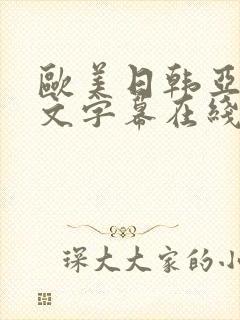 歐美日韩亞
文字幕在綫
琛大大家的小